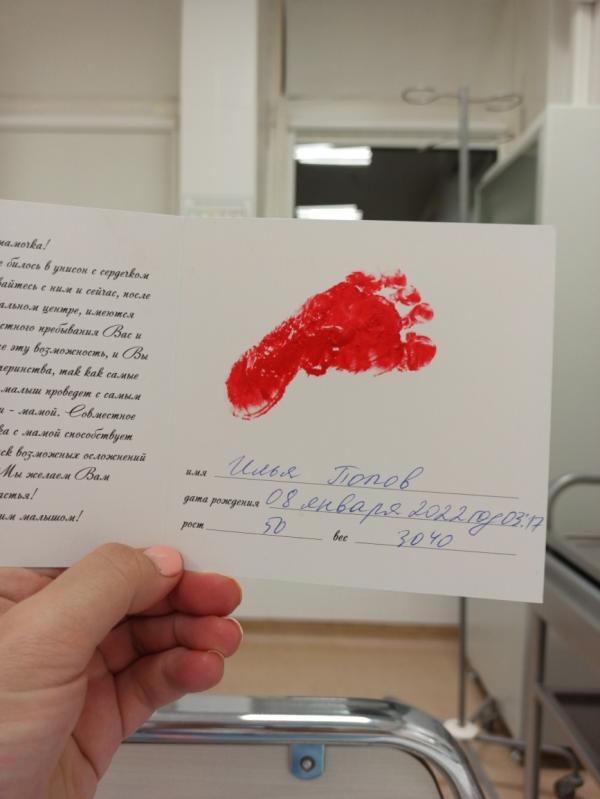 мамочка!
билось в унисон с сердечком
вайтесь с ним и сейчас, после
альном центре, имеются
стного пребывания Вас и
е эту возможность, и Вы
теринства, так как самые
малыш проведет с самым
и - мамой. Совместное
ка с мамой способствует
ск возможных осложнений
Мы желаем Вам
астья!
им малышом!
имя Илья Попов
дата рождения 08 января 2022 год 03:17
рост 50 вес 3040